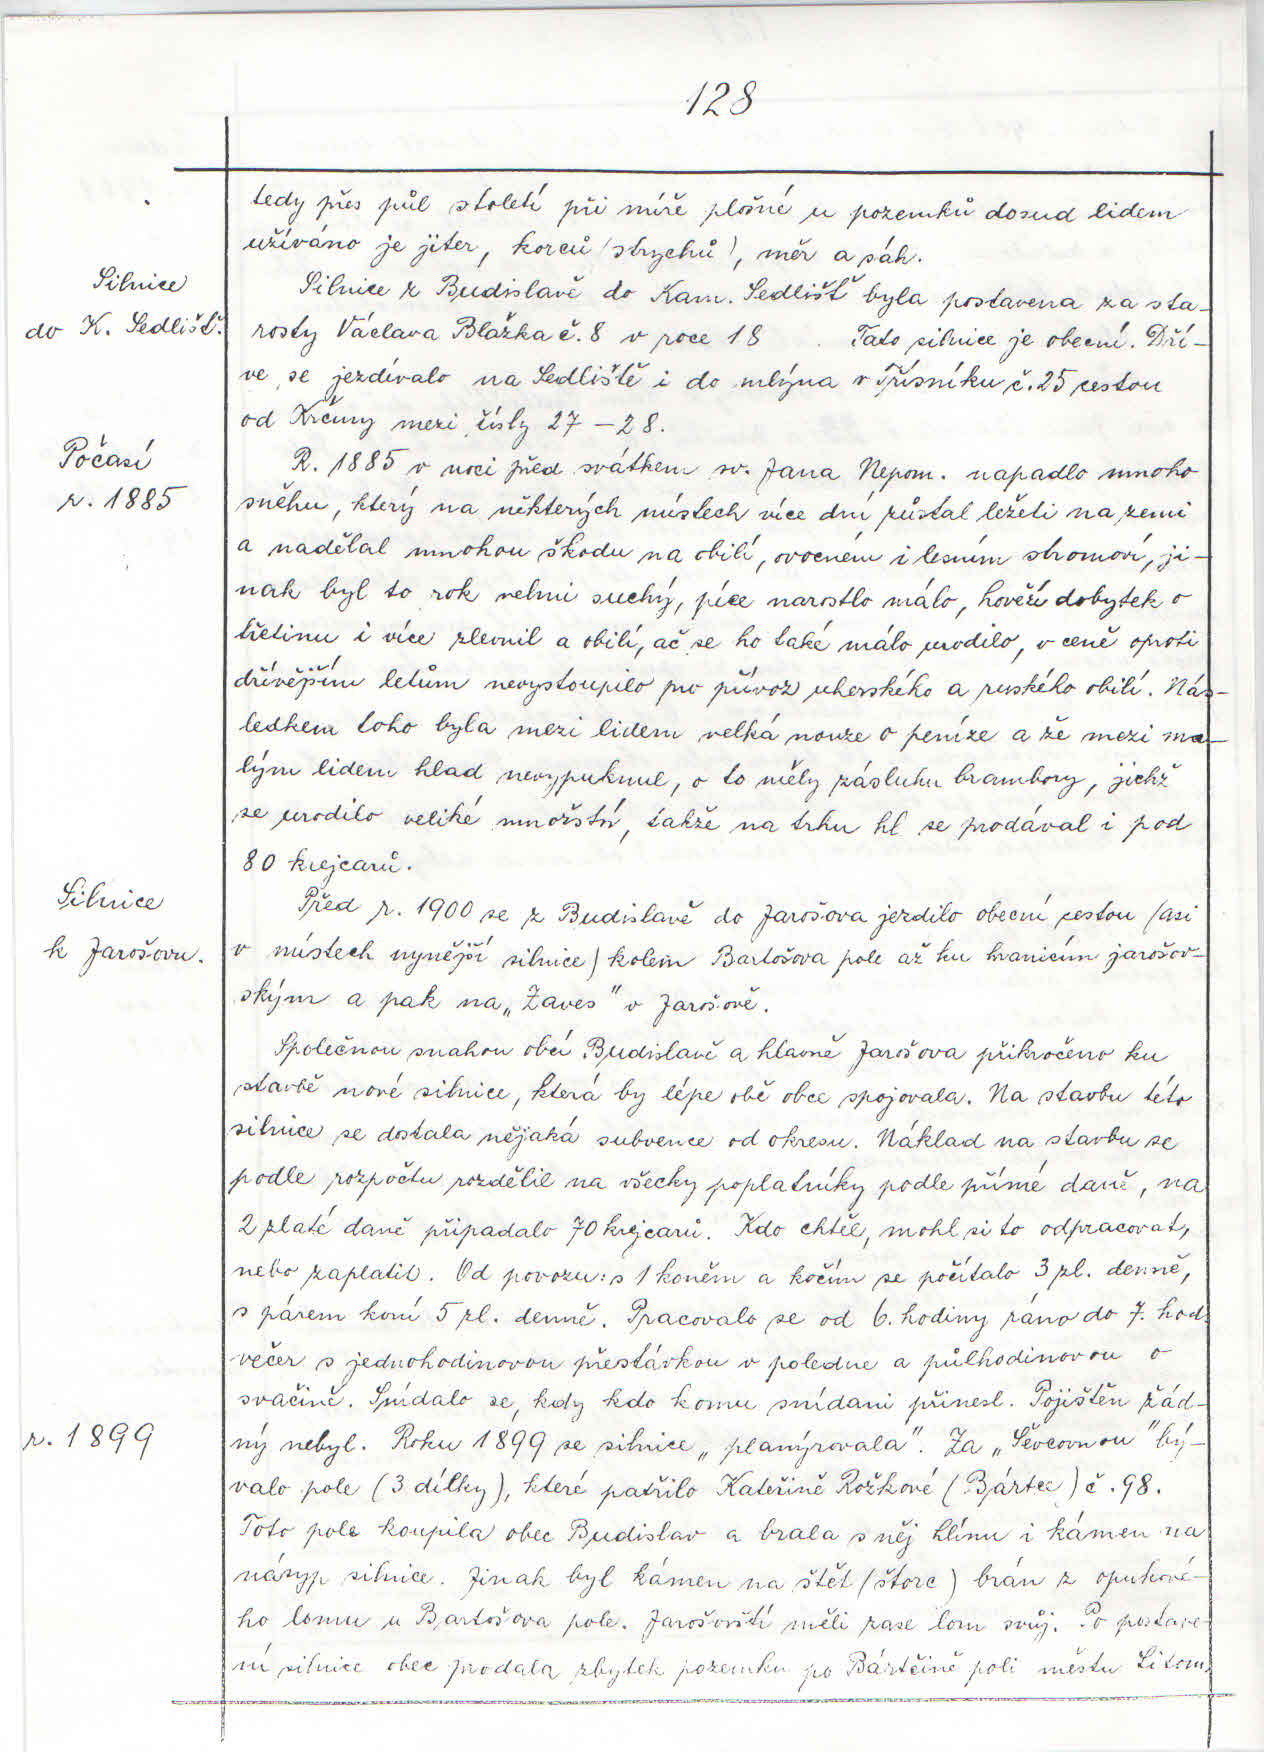 128
tedy přes půl století při míře plošné u pozemků dosud lidem
užíváno je jiter, korců (strychů), měr a sáh.
Silnice
do K. Sedlišť.
Silnice z Budislavě do Kam. Sedlišť byla postavena za sta-
rosty Václava Blažka č. 8 v roce 18 . Tato silnice je obecní. Dří-
ve se jezdívalo na Sedliště i do mlýna v Třísníku č. 25 cestou
od Krčmy mezi čísly 27 – 28.
Počasí
r. 1885
R. 1885 v noci před svátkem sv. Jana Nepom. napadlo mnoho
sněhu, který na některých místech více dní zůstal ležeti na zemi
a nadělal mnohou škodu na obilí, ovocném i lesním stromoví, ji-
nak byl to rok velmi suchý, píce narostlo málo, hovězí dobytek o
třetinu i více zlevnil a obilí, ač se ho také málo urodilo, v ceně oproti
dřívějším letům nevystoupilo pro přívoz uherského a ruského obilí. Nás-
ledkem toho byla mezi lidem velká nouze o peníze a že mezi ma-
lým lidem hlad nevypuknul, o to měly zásluhu brambory, jichž
se urodilo veliké množství, takže na trhu hl se prodával i pod
80 krejcarů.
Silnice
k Jarošovu.
Před r. 1900 se z Budislavě do Jarošova jezdilo obecní cestou (asi
v místech nynější silnice) kolem Bartošova pole až ku hranicím jarošov-
ským a pak na „Zaves" v Jarošově.
Společnou snahou obcí Budislavě a hlavně Jarošova přikročeno ku
stavbě nové silnice, která by lépe obě obce spojovala. Na stavbu této
silnice se dostala nějaká subvence od okresu. Náklad na stavbu se
podle rozpočtu rozdělil na všecky poplatníky podle přímé daně, na
2 zlaté daně připadalo 70 krejcarů. Kdo chtěl, mohl si to odpracovat,
nebo zaplatil. Od povozu: s 1 koněm a kočím se počítalo 3 zl. denně,
s párem koní 5 zl. denně. Pracovalo se od 6. hodiny ráno do 7. hod.
večer s jednohodinovou přestávkou v poledne a půlhodinovou o
svačině. Snídalo se, kdy kdo komu snídani přinesl. Pojištěn žád-
r. 1899
ný nebyl. Roku 1899 se silnice „planýrovala". Za „Ševcovnou" bý-
valo pole (3 dílky), které patřilo Kateřině Rožkové (Bártce) č. 98.
Toto pole koupila obec Budislav a brala s něj hlínu i kámen na
násyp silnice. Jinak byl kámen na štět (štorc) brán z opukové-
ho lomu u Bartošova pole. Jarošovští měli zase lom svůj. Po postave-
ní silnice obec prodala zbytek pozemku po Bártčině poli městu Litom.